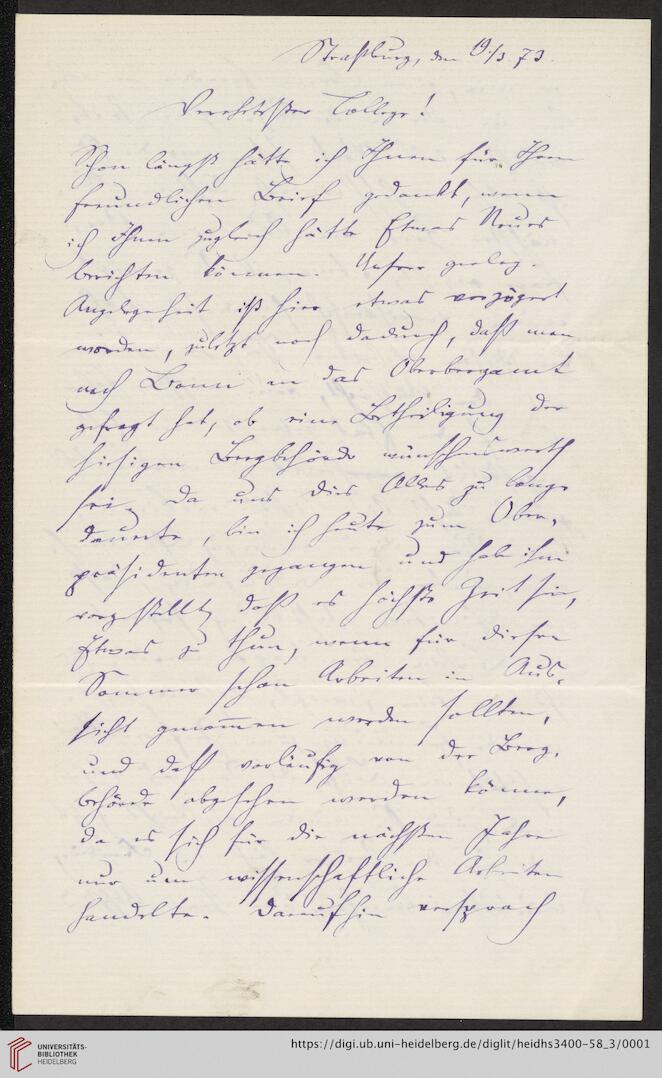 Straßburg, den 19/3 73.
Verehrtester College!
Schon längst hätte ich Ihnen für Ihren
freundlichen Brief gedankt, wenn
ich Ihnen zugleich hätte Etwas Neues
berichten können. Unsere geolog.
Angelegenheit ist hier etwas verzögert
worden, zuletzt noch dadurch, daß man
nach Bonn an das Oberbergamt
gefragt hat, ob eine Betheiligung der
hiesigen Bergbehörde wünschenswerth
sei. Da uns dies Alles zu lange
dauerte, bin ich heute zum Ober-
präsidenten gegangen und habe ihm
vorgestellt, daß es höchste Zeit sei,
Etwas zu thun, wenn für diesen
Sommer schon Arbeiten in Aus-
sicht genommen werden sollten,
und daß vorläufig von der Berg-
behörde abgesehen werden könne,
da es sich für die nächsten Jahre
nur um wissenschaftliche Arbeiten
handelte. Daraufhin versprach
UNIVERSITÄTS-
BIBLIOTHEK
HEIDELBERG
https://digi.ub.uni-heidelberg.de/diglit/heidhs3400-58_3/0001